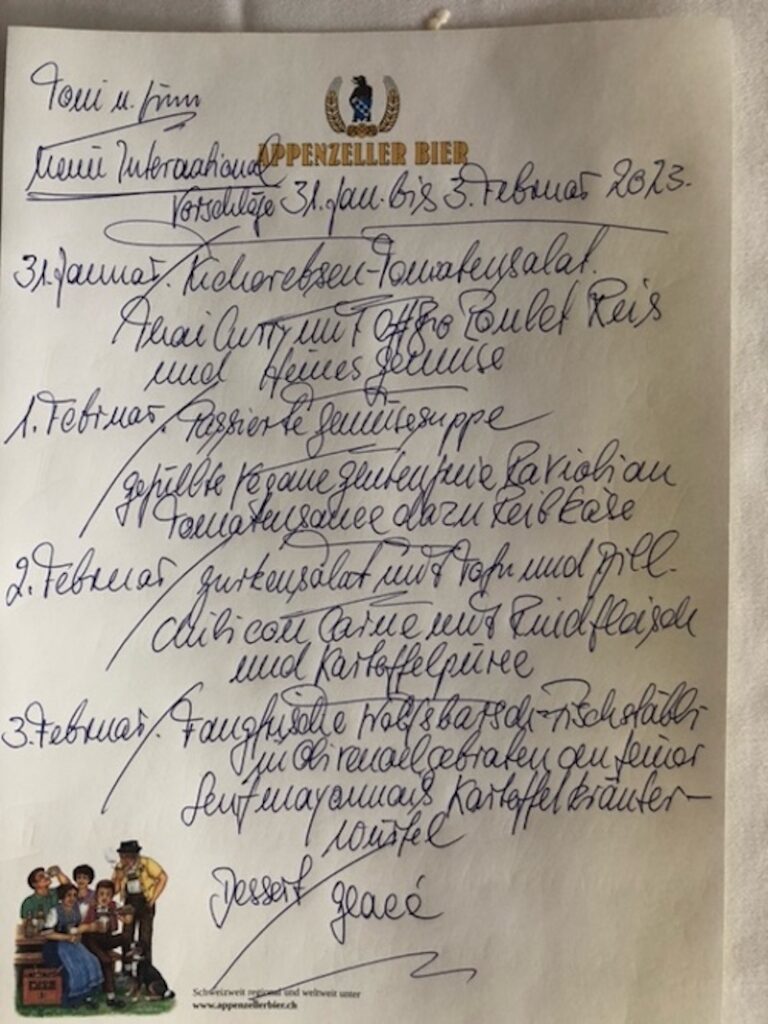 Toni u.
APPENZELLER BIER
Menü International
Vorschläge 31. Jan. bis 3. Februar 2023.
31. Januar. Kichererbsen-Tomatensalat.
Thai Curry mit Poulet Reis
und kleines Gemüse
1. Februar. Passierte Gemüsesuppe
gefüllte Vegane glutenfreie Ravioli an
Tomatensauce dazu Reibkäse
2. Februar Gurkensalat mit Tofu und Dill.
Chili con Carne mit Rindfleisch
und Kartoffelpüree
3. Februar. Fangfrische Wolfsbarsch-Fischstäbli
in Olivenoel gebraten an feiner
Senfmayonnais Kartoffelkräuter-
würfel
Dessert Glacé
Schweizweit regional und weltweit unter
www.appenzellerbier.ch